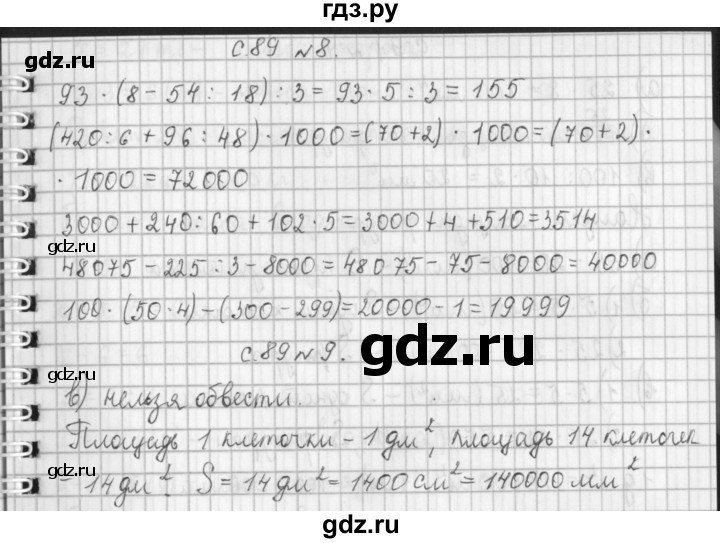 гдз.ру
с.89 №8.
93 · (8 - 54 : 18) : 3 = 93 · 5 : 3 = 155
(420 : 6 + 96 : 48) · 1000 = (70+2) · 1000 = (70+2) ·
· 1000 = 72000
3000 + 240 : 60 + 102 · 5 = 3000 + 4 + 510 = 3514
48075 - 225 : 3 - 8000 = 48075 - 75 - 8000 = 40000
100 · (50 · 4) - (300 - 299) = 20000 - 1 = 19999
с.89 №9.
в) нельзя обвести.
Площадь 1 клеточки - 1 дм², площадь 14 клеточек
- 14 дм². S = 14 дм² = 1400 см² = 140000 мм²
gdz.ru
gdz.ru
gdz.ru
gdz.ru
gdz.ru
gdz.ru
gdz.ru
gdz.ru
gdz.ru
gdz.ru